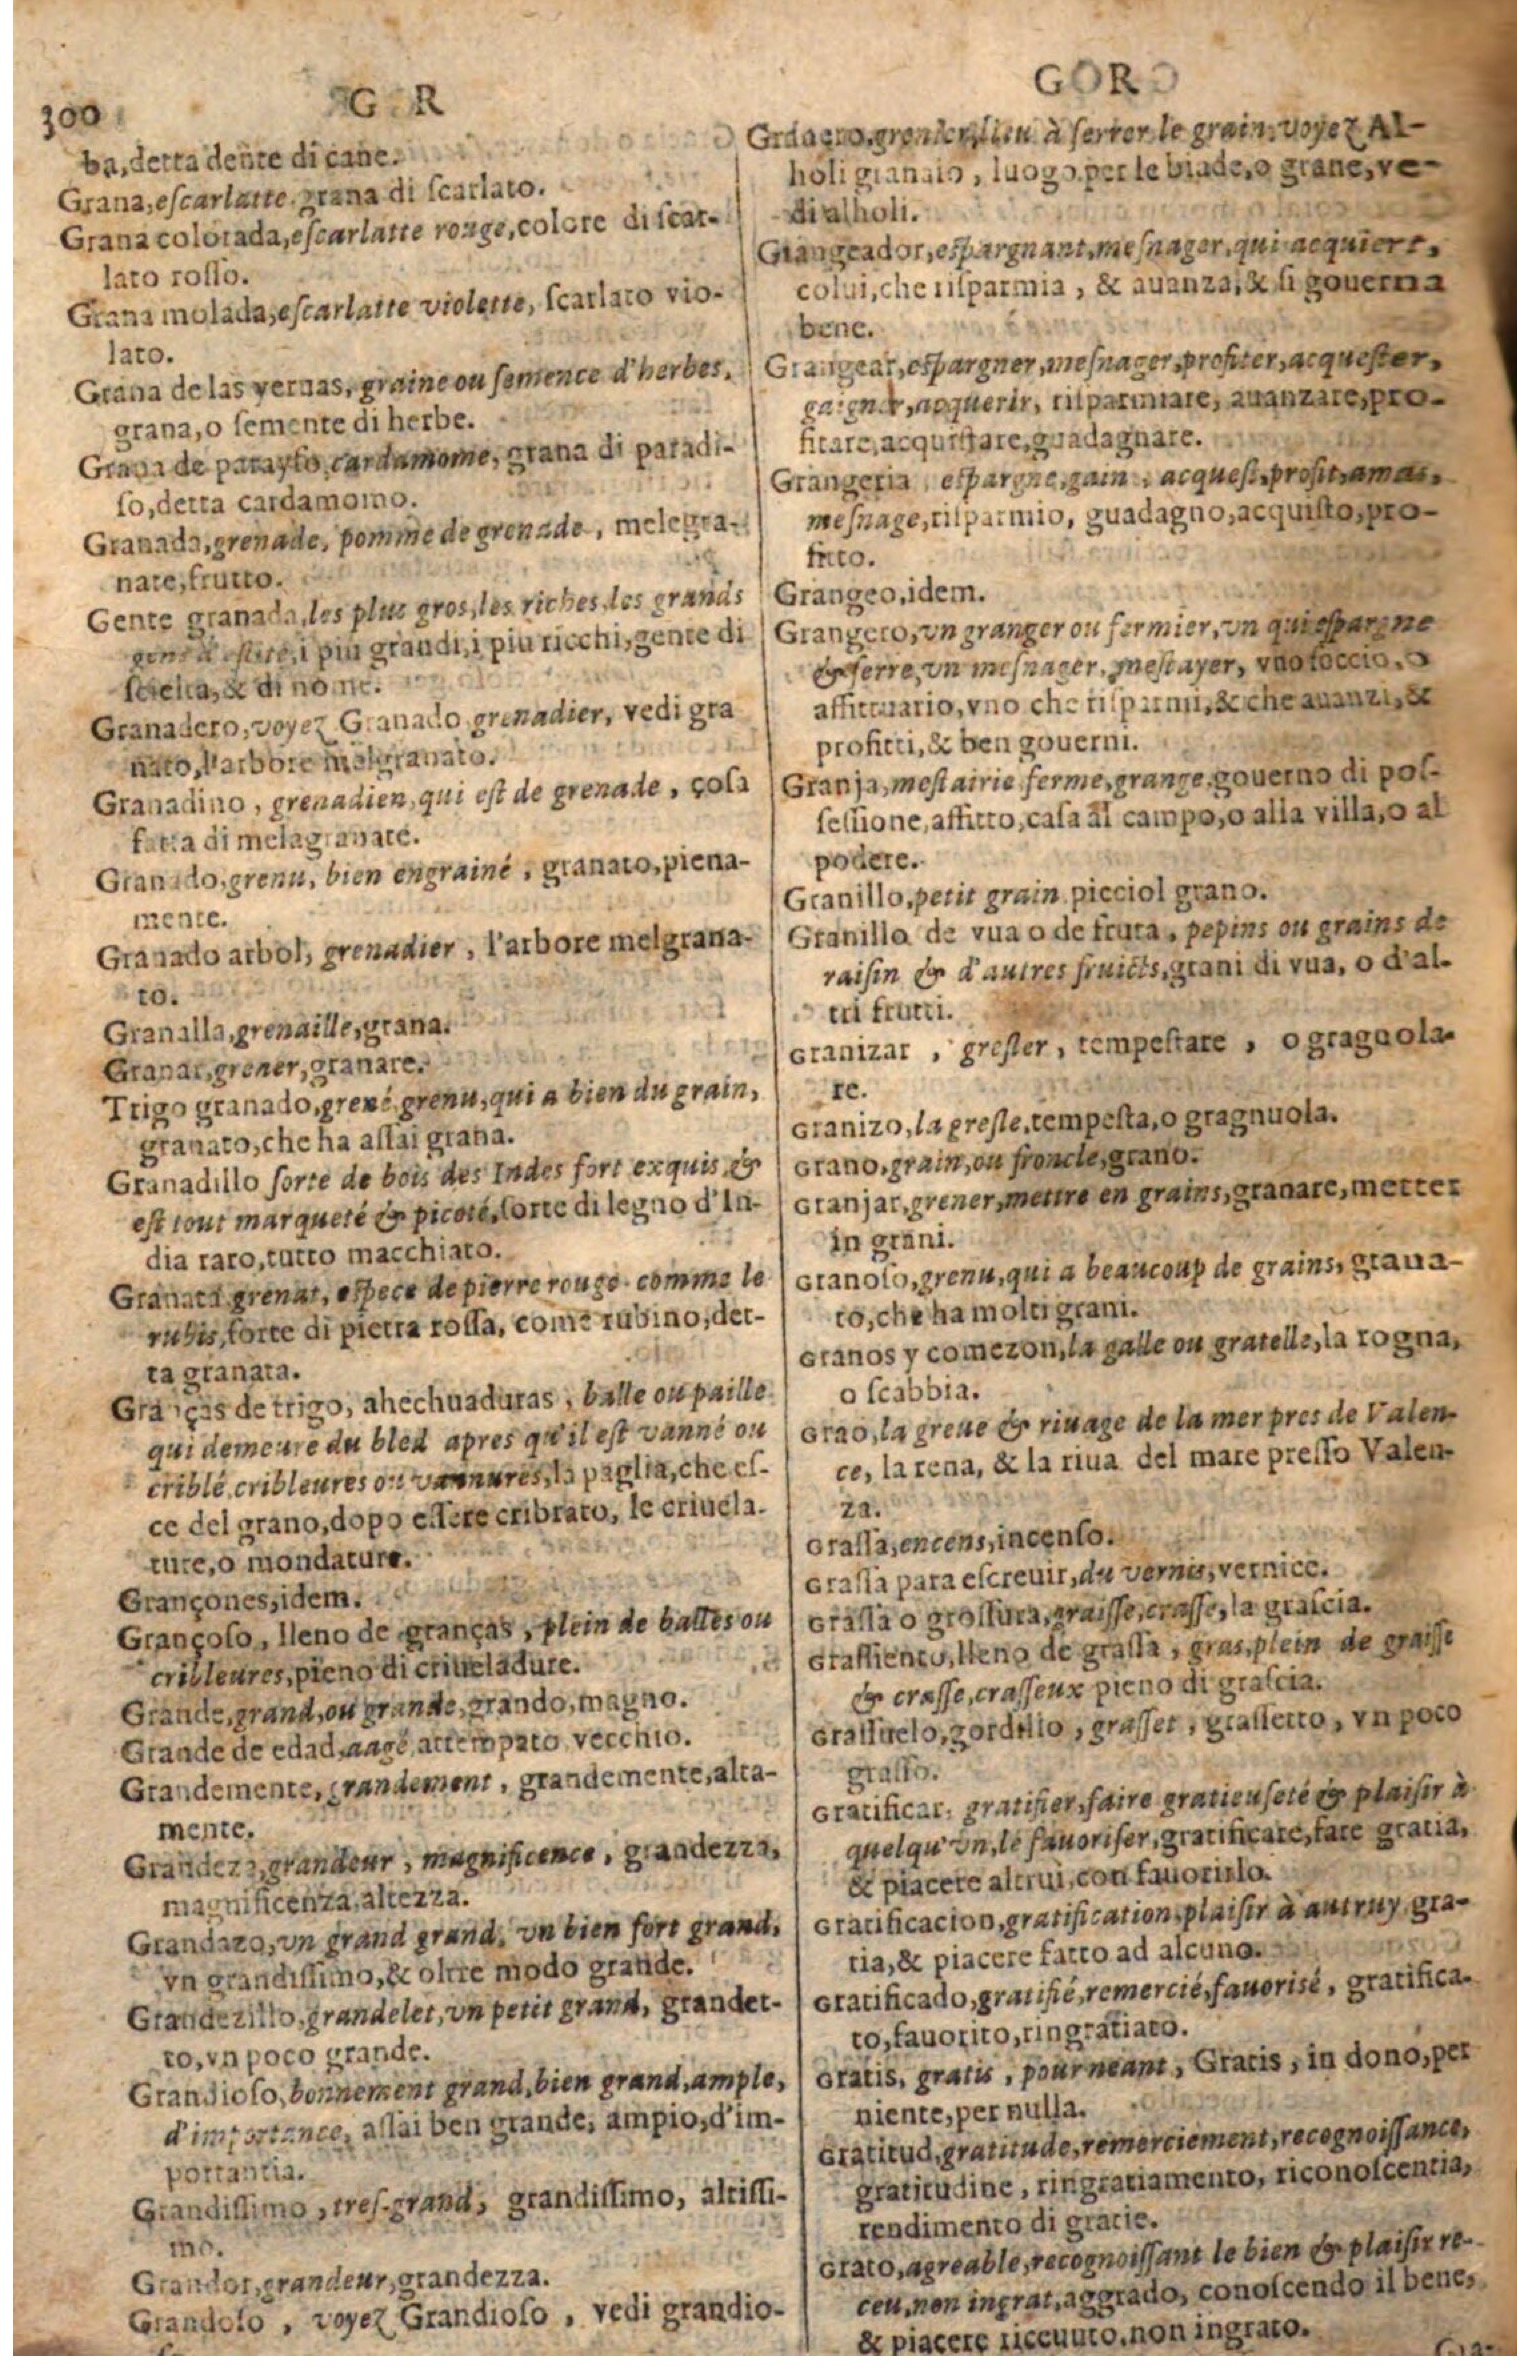 300
G R
ba,detta dente di cane.
Grana,eſcarlatte.grana di ſcarlato.
Grana colorada,eſcarlatte rouge,colore di ſcar-
lato roſſo.
Grana molada,eſcarlatte violette, ſcarlato vio-
lato.
Grana de las yeruas, graine ou ſemence d'herbes,
grana,o ſemente di herbe.
Grana de parayſo,cardamome, grana di paradi-
ſo,detta cardamomo.
Granada,grenade, pomme de grenade, melegra-
nate,frutto.
Gente granada,les plus gros,les riches,les grands
i piu grandi,i piu ricchi,gente di
ſcielta,& di nome.
Granadero,voyez Granado grenadier, vedi gra
nato,l'arbore melgranato.
Granadino, grenadien,qui eſt de grenade, çoſa
fatta di melagranate.
Granado,grenu, bien engrainé, granato,piena-
mente.
Granado arbol, grenadier, l'arbore melgrana-
to.
Granalla,grenaille,grana.
Granar,grener,granare.
Trigo granado,grené,grenu,qui a bien du grain,
granato,che ha aſſai grana.
Granadillo ſorte de bois des Indes fort exquis, &
eſt tout marqueté & picoté,ſorte di legno d'In-
dia raro,tutto macchiato.
Granata grenat, eſpece de pierre rouge comme le
rubis,ſorte di pietra roſſa, come rubino,det-
ta granata.
Granças de trigo, ahechuaduras, balle ou paille
qui demeure du bled apres qu'il eſt vanné ou
criblé,cribleures ou vannures,la paglia,che eſ-
ce del grano,dopo eſſere cribrato, le criuela-
ture,o mondature.
Grançones,idem.
Grançoſo, lleno de granças, plein de balles ou
cribleures,pieno di criueladure.
Grande,grand,ou grande,grando,magno.
Grande de edad,aagé,attempato vecchio.
Grandemente, grandement, grandemente,alta-
mente.
Grandeza,grandeur, magnificence, grandezza,
magnificenza,altezza.
Grandazo,vn grand grand, vn bien fort grand,
vn grandiſſimo,& oltre modo grande.
Grandezillo,grandelet,vn petit grand, grandet-
to,vn poco grande.
Grandioſo,bonnement grand,bien grand,ample,
d'importance, aſſai ben grande, ampio,d'im-
portantia.
Grandiſſimo, treſ-grand, grandiſſimo, altiſſi-
mo.
Grandor,grandeur,grandezza.
Grandoſo, voyez Grandioſo, vedi grandio-
GOR
Granero,grenier,lieu à ſerrer le grain,voyez Al-
holi gianaio, luogo per le biade,o grane,ve-
di alholi.
Grangeador,eſpargnant,meſnager,qui acquiert,
colui,che riſparmia, & auanza,& ſi gouerna
bene.
Grangear,eſpargner,meſnager,profiter,acqueſter,
gaigner,acquerir, riſparmiare, auanzare,pro-
fitare,acquiſtare,guadagnare.
Grangeria, eſpargne,gain, acqueſt,profit,amas,
meſnage,riſparmio, guadagno,acquiſto,pro-
fitto.
Grangeo,idem.
Grangero,vn granger ou fermier,vn qui eſpargne
& ſerre,vn meſnager, meſtayer, vno ſoccio,o
affittuario,vno che riſparmi,& che auanzi,&
profitti,& ben gouerni.
Granja,meſtairie ferme,grange,gouerno di poſ-
ſeſſione,affitto,caſa al campo,o alla villa,o al
podere.
Granillo,petit grain picciol grano.
Granillo de vua o de fruta, pepins ou grains de
raiſin & d'autres fruicts,grani di vua, o d'al-
tri frutti.
Granizar, greſler, tempeſtare, o gragnola-
re.
Granizo,la greſle,tempeſta,o gragnuola.
Grano,grain,ou froncle,grano.
Granjar,grener,mettre en grains,granare,metter
in grani.
Granoſo,grenu,qui a beaucoup de grains, grana-
to,che ha molti grani.
Granos y comezon,la galle ou gratelle,la rogna,
o ſcabbia.
Grao,la greue & riuage de la mer pres de Valen-
ce, la rena, & la riua del mare preſſo Valen-
za.
Graſſa,encens,incenſo.
Graſſa para eſcreuir,du vernis,vernice.
Graſſa o groſſura,graiſſe,craſſe,la graſcia.
Graſſiento,lleno de graſſa, gras,plein de graiſſe
& craſſe,craſſeux pieno di graſcia.
Graſſuelo,gordillo, graſſet, graſſetto, vn poco
graſſo.
Gratificar, gratifier,faire gratieuſeté & plaiſir à
quelqu'vn,le fauoriſer,gratificare,fare gratia,
& piacere altrui,con fauorirlo.
Gratificacion,gratification,plaiſir à autruy,gra-
tia,& piacere fatto ad alcuno.
Gratificado,gratifié,remercié,fauoriſé, gratifica-
to,fauorito,ringratiato.
Gratis, gratis, pour neant, Gratis, in dono,per
niente,per nulla.
Gratitud,gratitude,remerciement,recognoiſſance,
gratitudine, ringratiamento, riconoſcentia,
rendimento di gratie.
Grato,agreable,recognoiſſant le bien & plaiſir re-
ceu,non ingrat,aggrado, conoſcendo il bene,
& piacere riceuuto,non ingrato.
Gra-